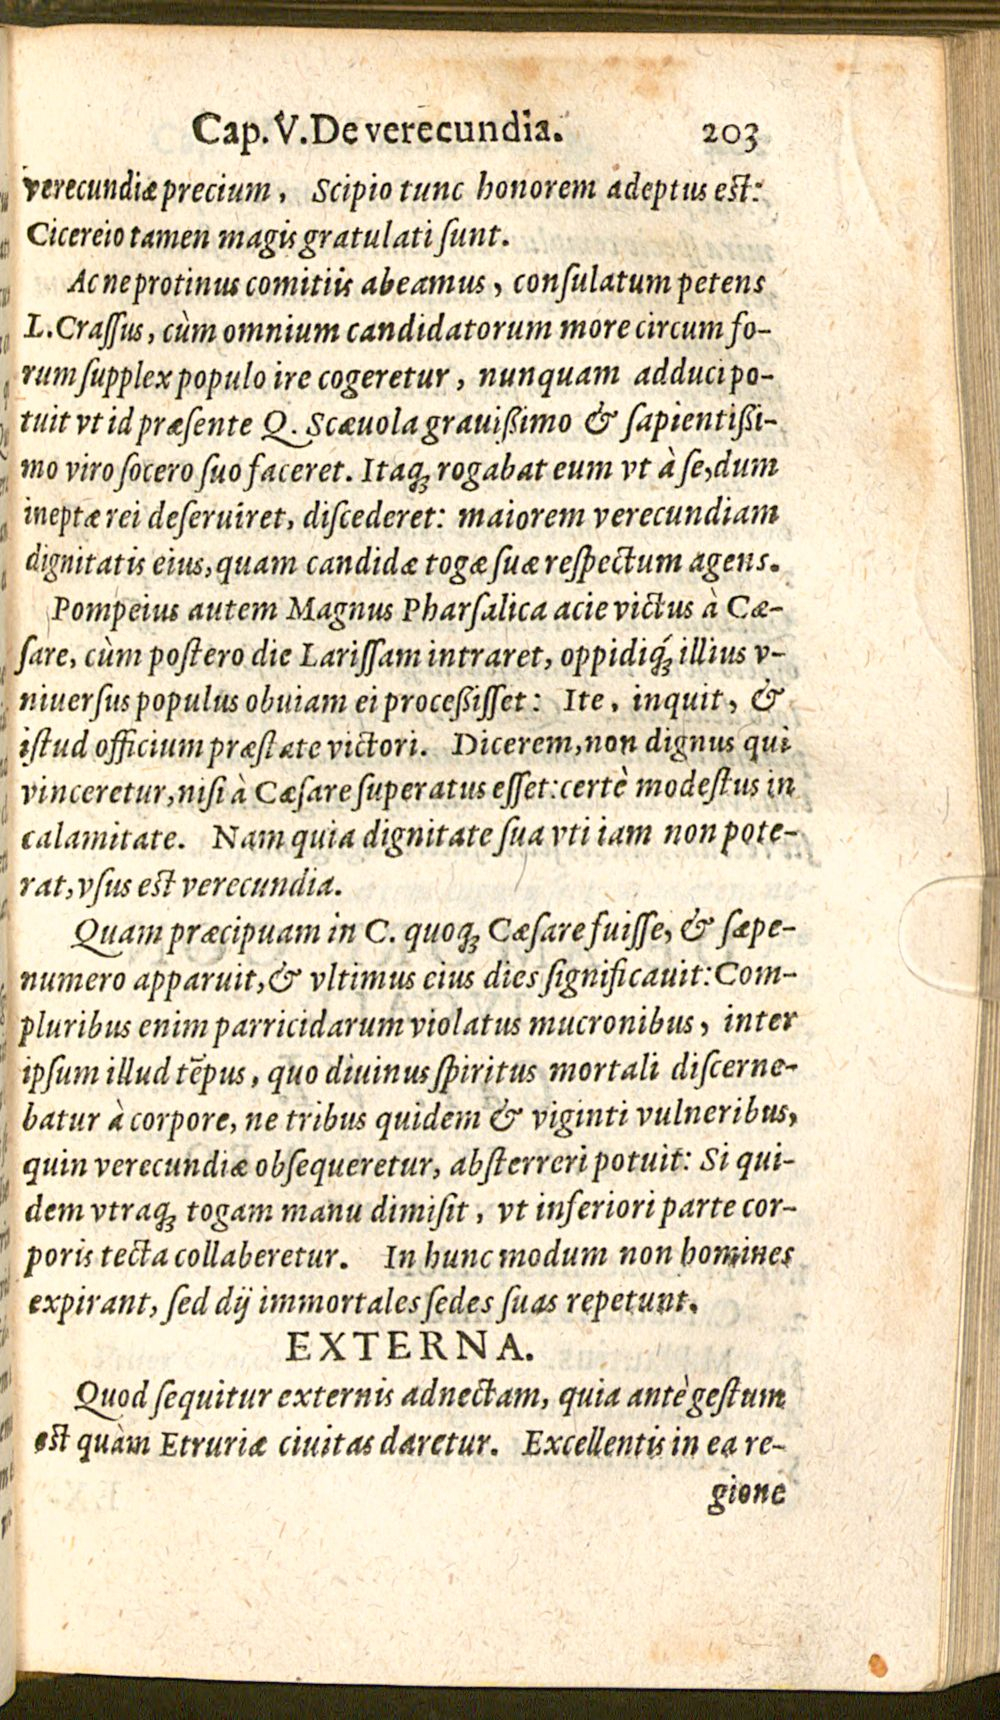 Cap. V. De verecundia. 203
verecundiæ precium. Scipio tunc honorem adeptus est:
Cicereio tamen magis gratulati ſunt.
Ac ne protinus comitiis abeamus, conſulatum petens
L. Craſſus, cùm omnium candidatorum more circum fo-
rum ſupplex populo ire cogeretur, nunquam adduci po-
tuit vt id præſente Q. Scæuola grauißimo & ſapientißi-
mo viro ſocero ſuo faceret. Itaq; rogabat eum vt à ſe, dum
ineptæ rei deſeruiret, diſcederet: maiorem verecundiam
dignitatis eius, quam candidæ togæ ſuæ reſpectum agens.
Pompeius autem Magnus Pharſalica acie victus à Cæ-
ſare, cùm poſtero die Lariſſam intraret, oppidiq́; illius v-
niuerſus populus obuiam ei proceßiſſet: Ite, inquit, &
iſtud officium præſtate victori. Dicerem, non dignus qui
vinceretur, niſi à Cæſare ſuperatus eſſet: certè modeſtus in
calamitate. Nam quia dignitate ſua vti iam non pote-
rat, vſus est verecundia.
Quam præcipuam in C. quoq; Cæſare fuiſſe, & ſæpe-
numero apparuit, & vltimus eius dies ſignificauit: Com-
pluribus enim parricidarum violatus mucronibus, inter
ipſum illud tẽpus, quo diuinus ſpiritus mortali diſcerne-
batur à corpore, ne tribus quidem & viginti vulneribus,
quin verecundiæ obſequeretur, abſterreri potuit: Si qui-
dem vtraq; togam manu dimiſit, vt inferiori parte cor-
poris tecta collaberetur. In hunc modum non homines
expirant, ſed dij immortales ſedes ſuas repetunt.
EXTERNA.
Quod ſequitur externis adnectam, quia antè geſtum
est quàm Etruriæ ciuitas daretur. Excellentis in ea re-
gione